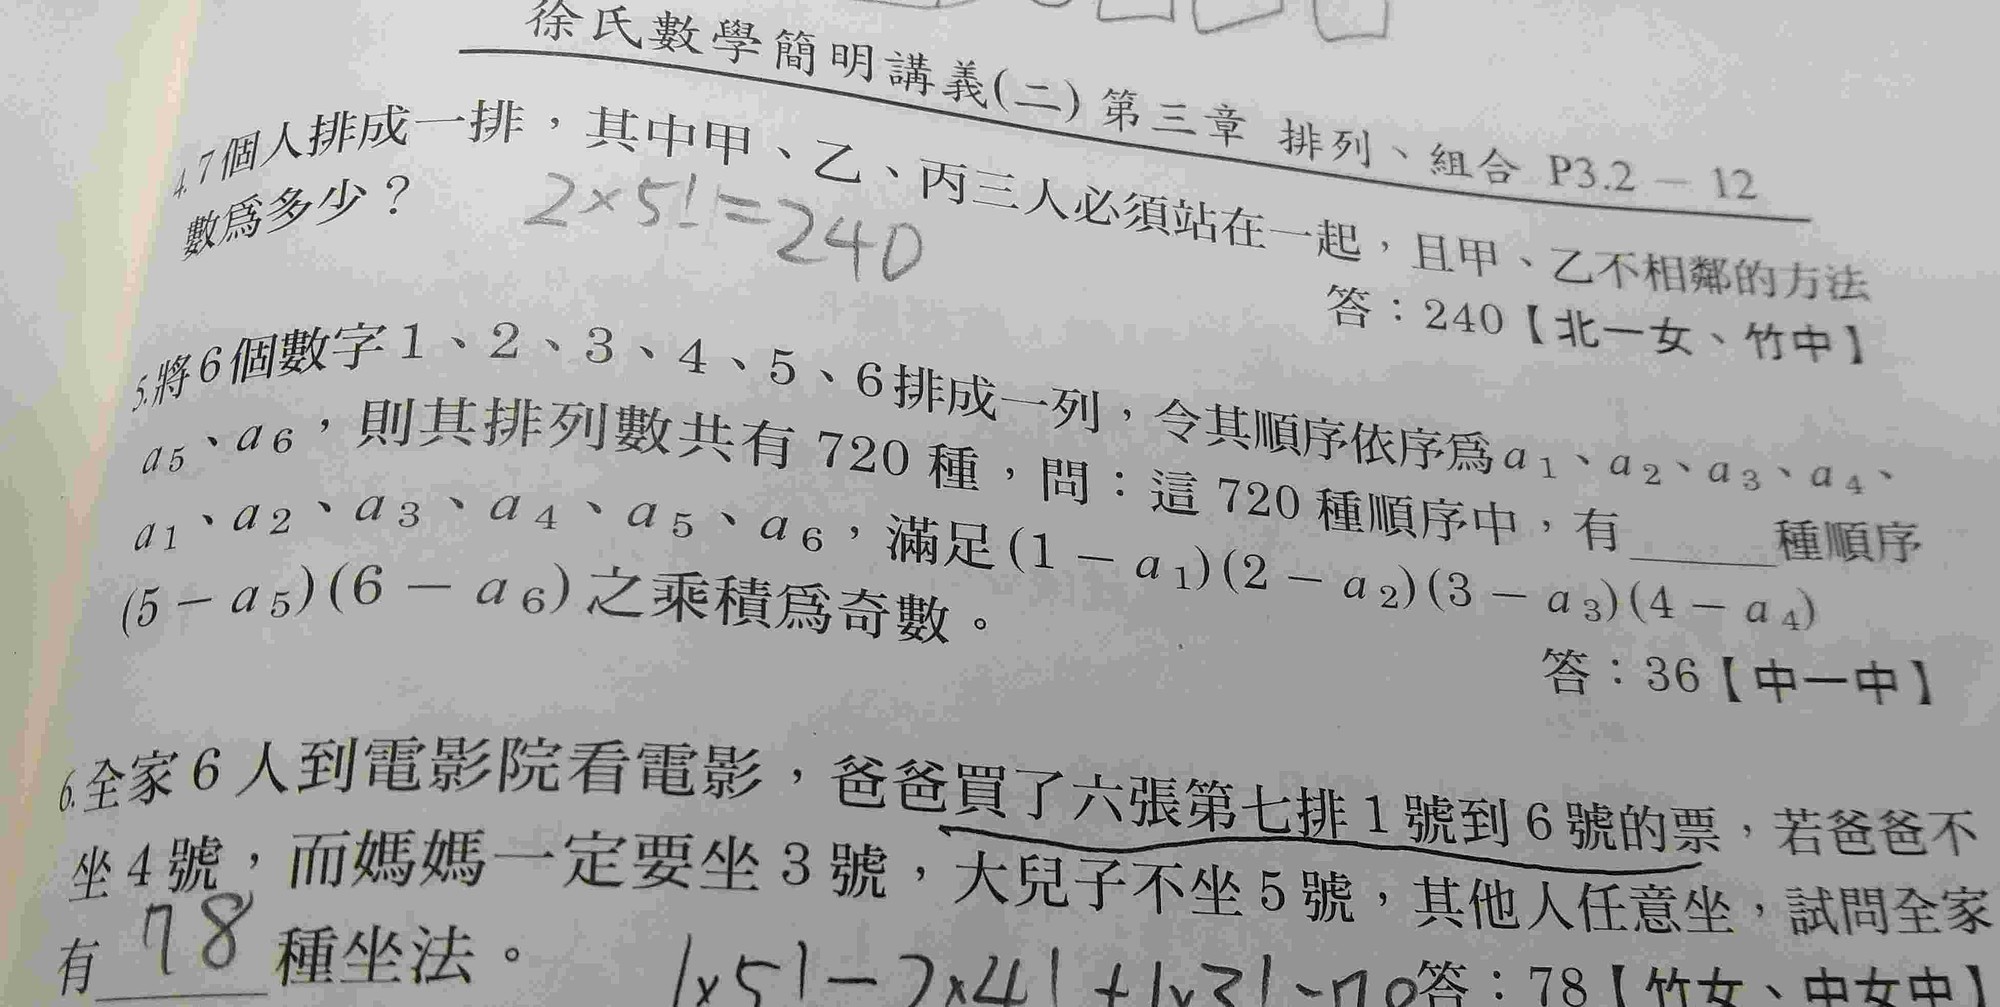 徐氏數學簡明講義(二) 第三章 排列、組合 P3.2 － 12
4.7個人排成一排，其中甲、乙、丙三人必須站在一起，且甲、乙不相鄰的方法
數爲多少？
2×5!=240
答：240【北一女、竹中】
5.將6個數字1、2、3、4、5、6排成一列，令其順序依序爲a1、a2、a3、a4、
a5、a6，則其排列數共有 720 種，問：這 720 種順序中，有＿＿＿種順序
a1、a2、a3、a4、a5、a6，滿足(1－a1)(2－a2)(3－a3)(4－a4)
(5－a5)(6－a6)之乘積爲奇數。
答：36【中一中】
6.全家6人到電影院看電影，爸爸買了六張第七排1號到6號的票，若爸爸不
坐4號，而媽媽一定要坐3號，大兒子不坐5號，其他人任意坐，試問全家
有 78 種坐法。
1×5!－2×4!＋1×3!=78
答：78【竹女、中女中】